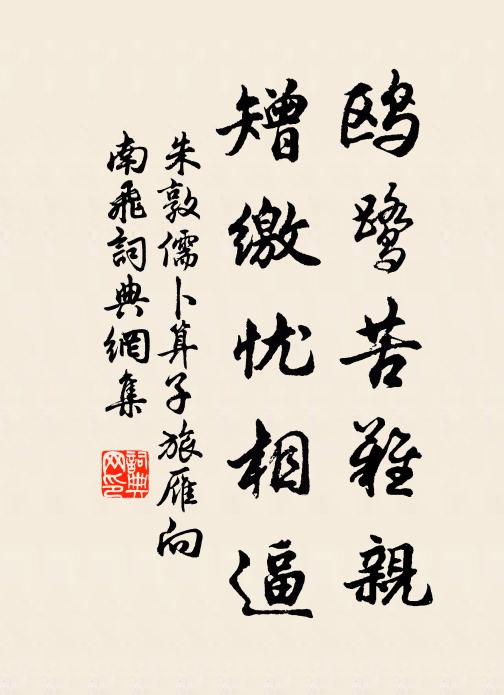 鸥鹭苦難親
矰繳忧相逼
朱敦儒卜算子旅雁向
南飛詞典網集
詞典
网印